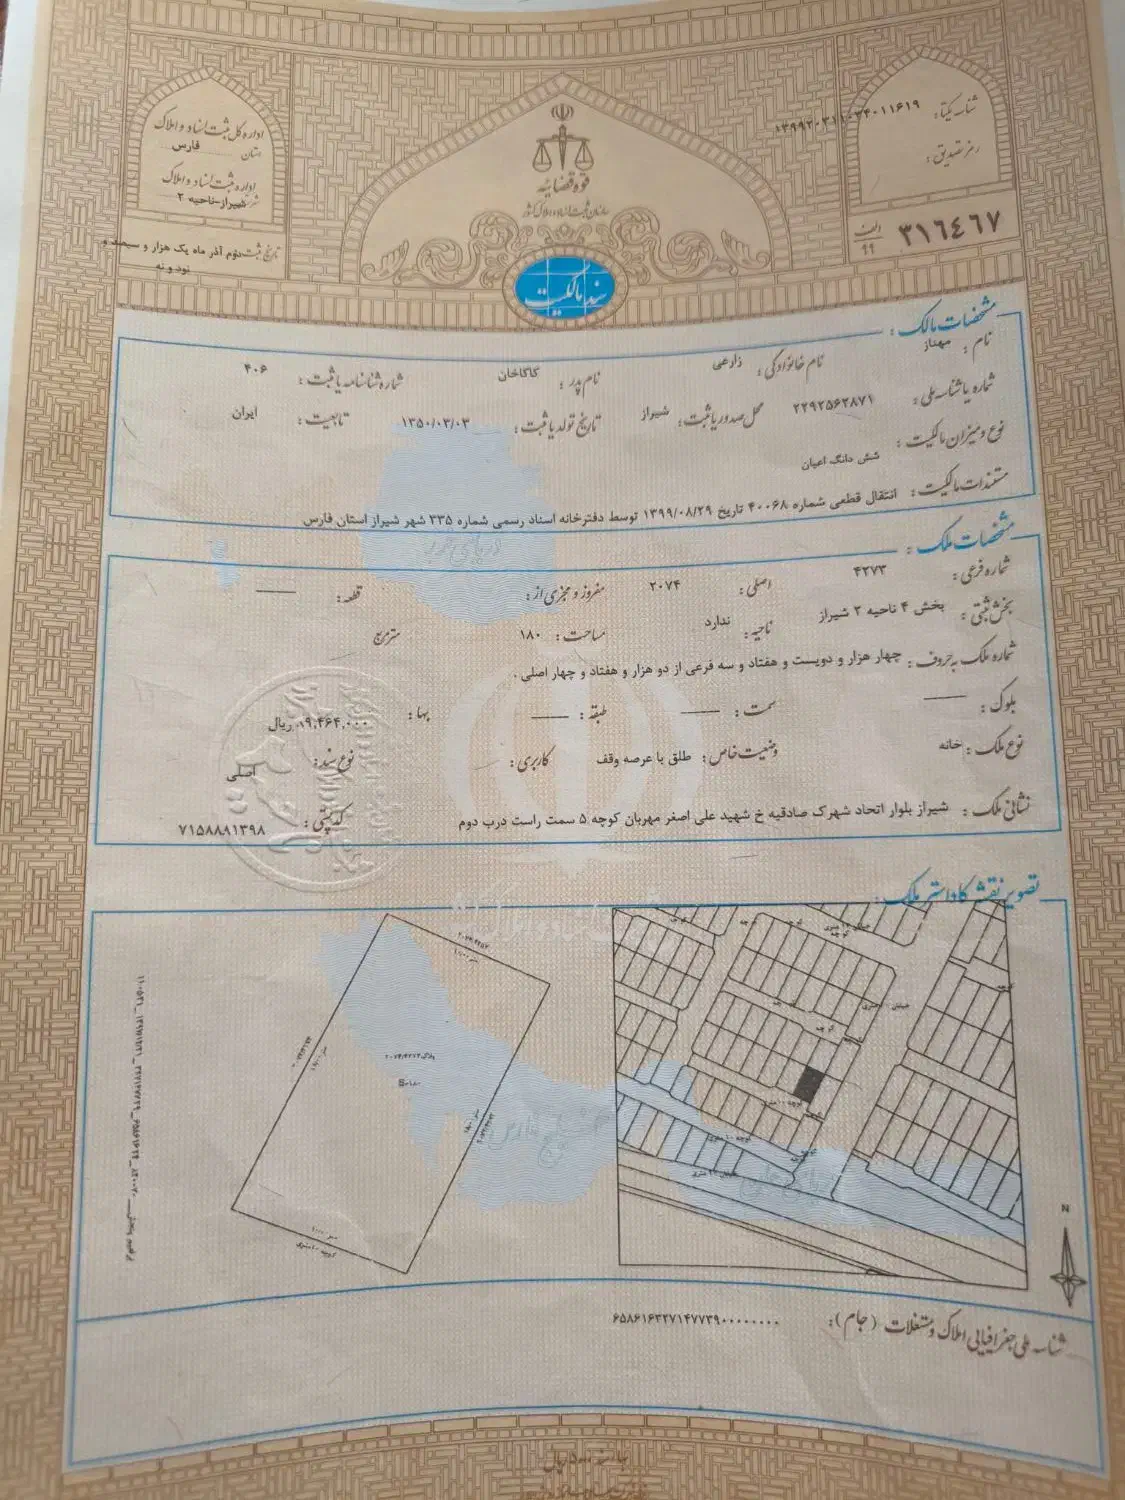 شناسه یکتا: ۱۳۹۹۲۰۳۱۱۰۳۴۰۱۱۶۱۹
رمز تصدیق:
۳۱۶۴۶۷
الف
۹۹
قوه قضائیه
سازمان ثبت اسناد و املاک کشور
سند مالکیت
اداره کل ثبت اسناد و املاک
استان فارس
اداره ثبت اسناد و املاک
شهر شیراز-ناحیه ۲
تاریخ ثبت: دوم آذر ماه یک هزار و سیصد و
نود و نه
مشخصات مالک:
نام: مهناز نام خانوادگی: زارعی نام پدر: کاکاخان شماره شناسنامه یا ثبت: ۴۰۶
شماره یا شناسه ملی: ۲۲۹۲۵۶۲۸۷۱ محل صدور یا ثبت: شیراز تاریخ تولد یا ثبت: ۱۳۵۰/۰۳/۰۳ تابعیت: ایران
نوع و میزان مالکیت: شش دانگ اعیان
مستندات مالکیت: انتقال قطعی شماره ۴۰۰۶۸ تاریخ ۱۳۹۹/۰۸/۲۹ توسط دفترخانه اسناد رسمی شماره ۳۳۵ شهر شیراز استان فارس
مشخصات ملک:
شماره فرعی: ۴۲۷۳ اصلی: ۲۰۷۴ مفروز و مجزی از: قطعه:
بخش ثبتی: بخش ۴ ناحیه ۲ شیراز ناحیه: ندارد مساحت: ۱۸۰ متر مربع
شماره ملک به حروف: چهار هزار و دویست و هفتاد و سه فرعی از دو هزار و هفتاد و چهار اصلی .
بلوک: سمت: طبقه: بها: ۱۹,۴۶۴,۰۰۰ ریال
نوع ملک: خانه وضعیت خاص: طلق با عرصه وقف کاربری: نوع سند: اصلی
نشانی ملک: شیراز بلوار اتحاد شهرک صادقیه خ شهید علی اصغر مهربان کوچه ۵ سمت راست درب دوم کد پستی: ۷۱۵۸۸۹۱۳۹۸
تصویر نقشه کاداستر ملک:
پلاک ۲۰۷۴/۴۲۷۳
S=۱۸۰
کوچه ۱۰ متری
خلیج فارس
N
شناسه ملی جغرافیایی املاک و مستغلات (جام): ۶۵۸۶۱۶۳۲۷۱۴۷۷۳۹۰۰۰۰۰۰۰۰۰